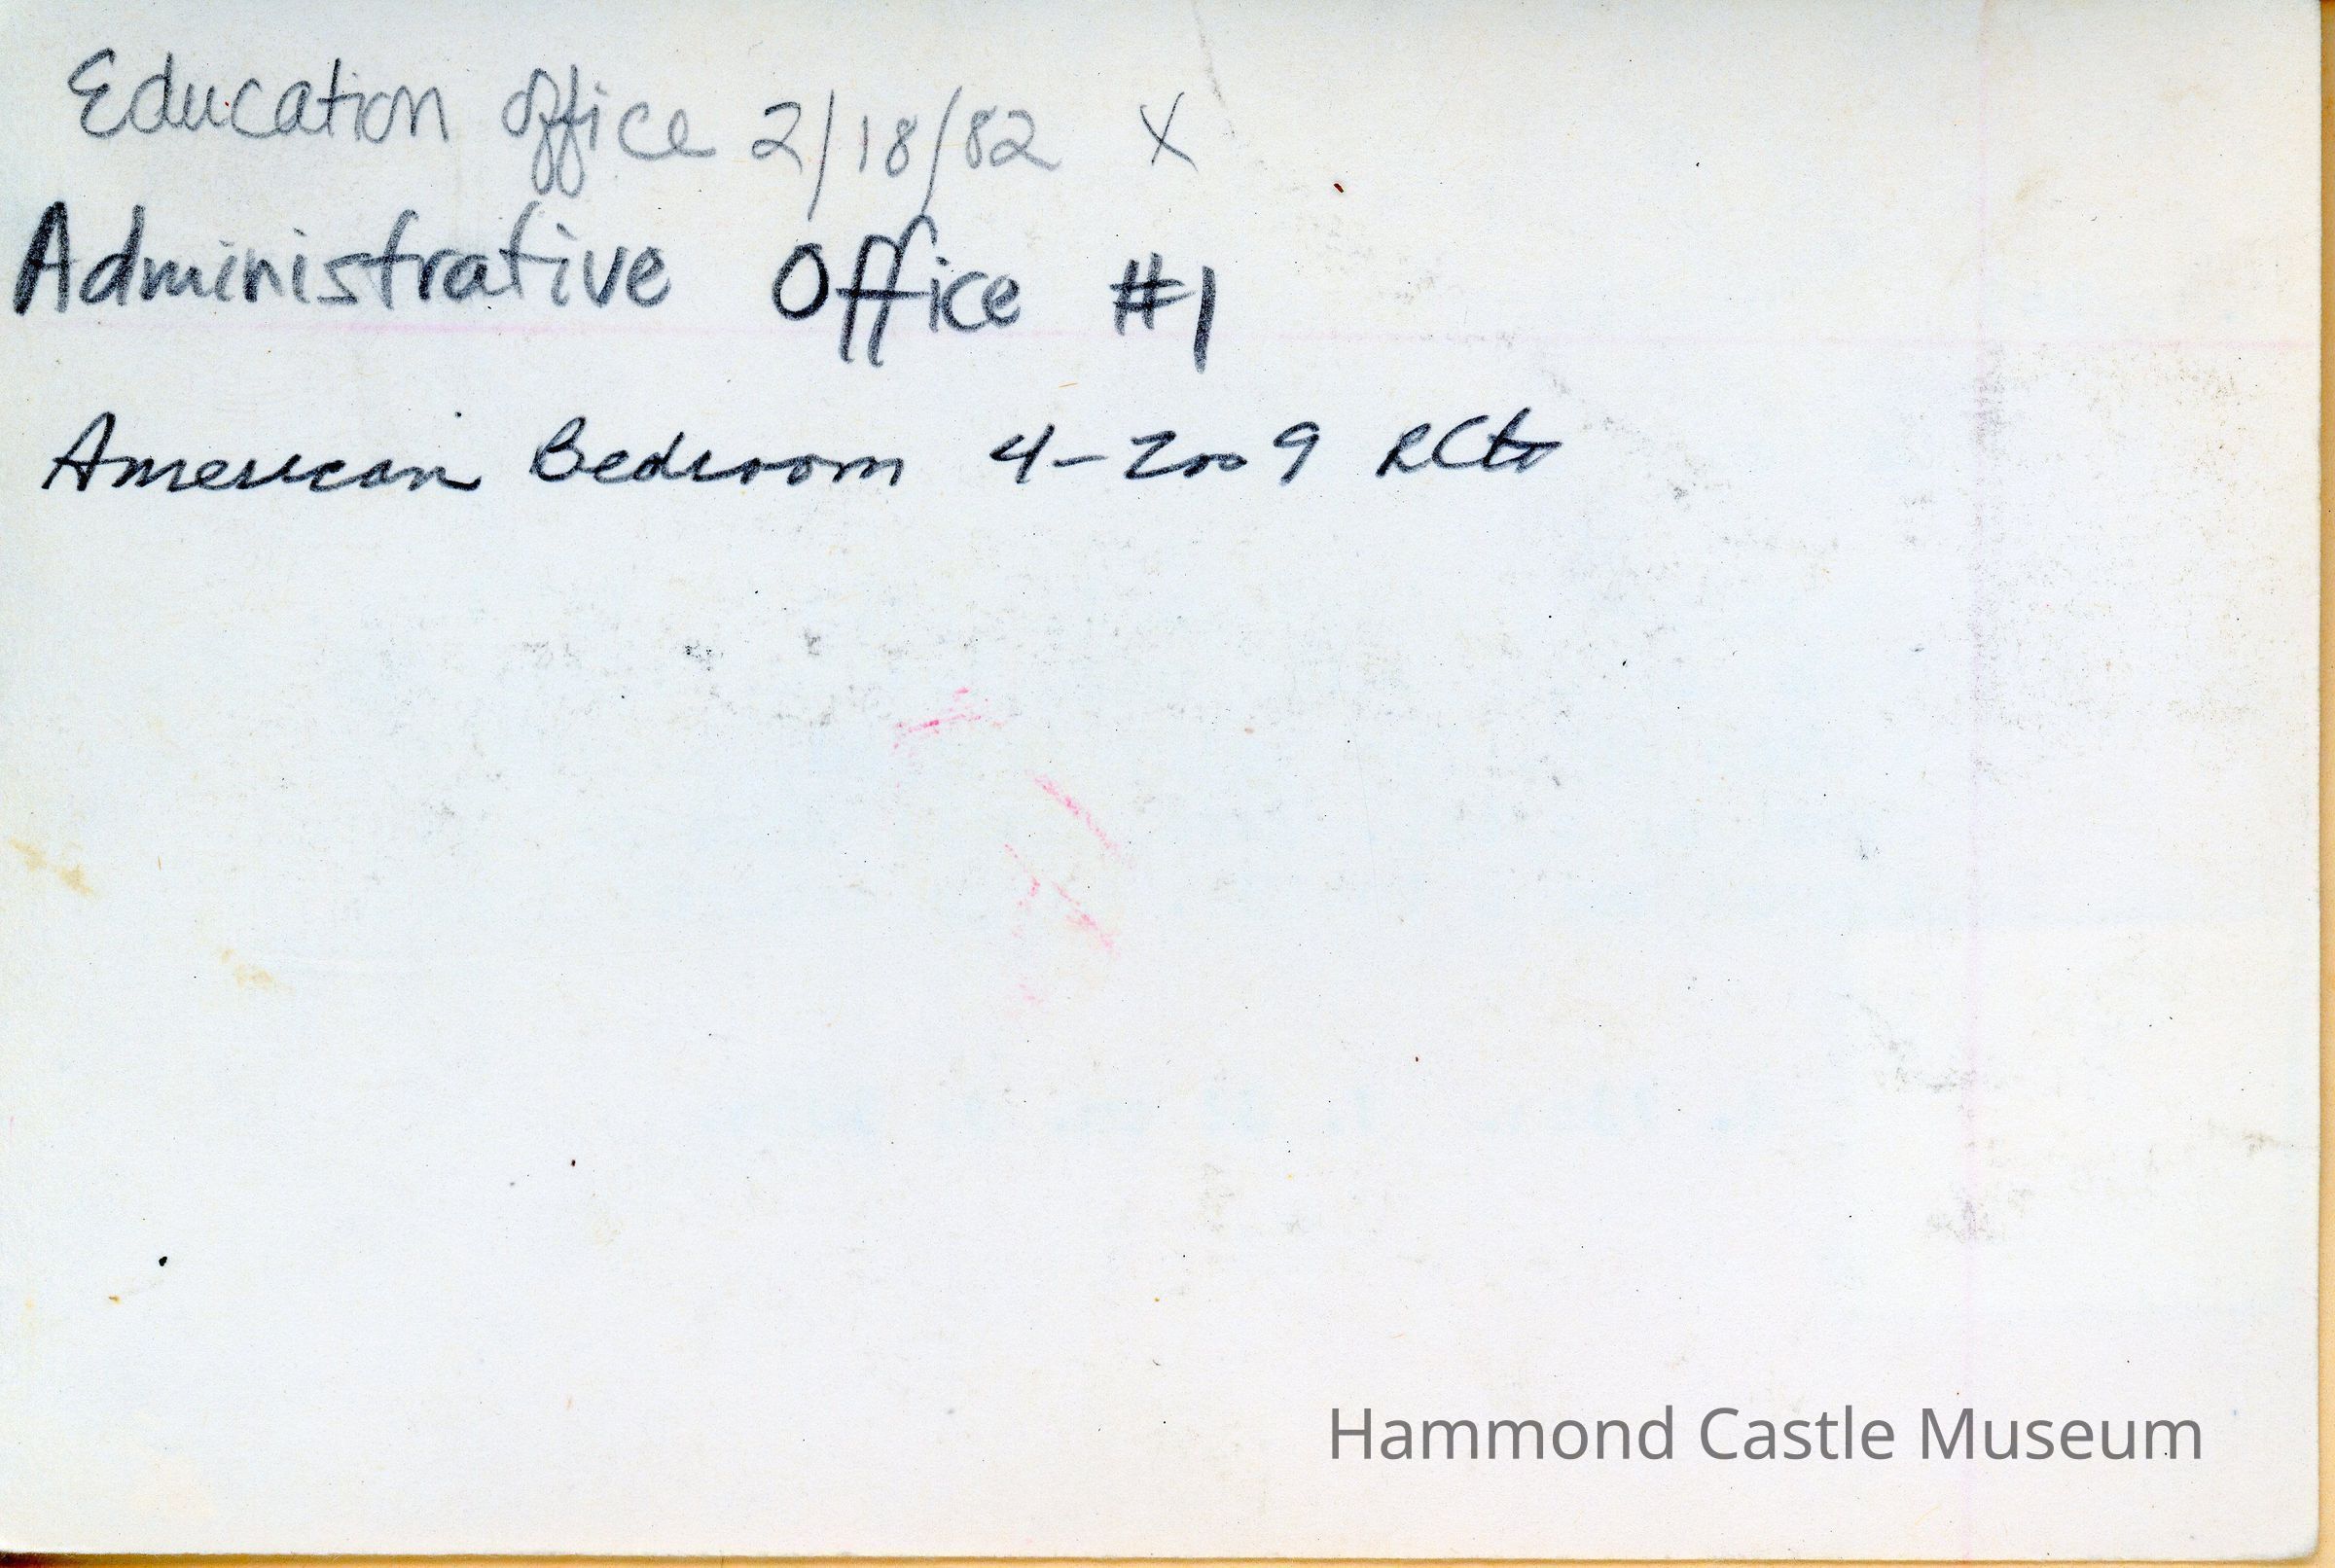 Education office 2/18/82 X
Administrative Office #1
American Bedroom 4-2009
Hammond Castle Museum